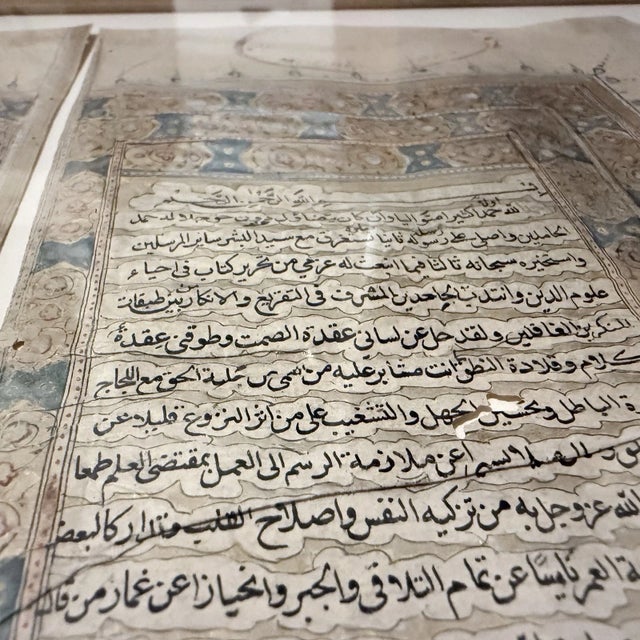 الله الرحمن الرحيم
الله حمدا كثيرا
الحامدين واصلي على رسوله ثانيا تستغرق مع سيد البشر سائر المرسلين
واستخيره سبحانه ثالثا فيما انبعث له عزمي من تحرير كتاب في احياء
علوم الدين وانتدب الجاحدين المسرف في التقريع والانكار بين طبقات
المنكرين الغافلين ولقد حل عن لساني عقدة الصمت وطوقني عقدة
الكلام وقلادة النطق مثابر عليه من العمى عن جلية الحق مع اللجاج
ة الباطل وتحسين الجهل والتشغيب على من اثر النزوع قليلا عن
عن ملازمة الرسم الى العمل بمقتضى العلم طمعا
الله عز وجل به من تزكيه النفس واصلاح القلب وتداركا لبعض
ة العمر يائسا عن تمام التلافي والجبر وانحيازا عن غمار من قال